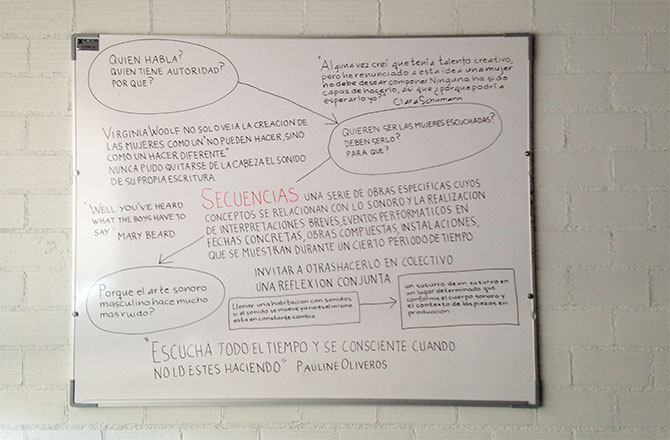 QUIEN HABLA?
QUIEN TIENE AUTORIDAD?
POR QUE?
"Alguna vez creí que tenia talento creativo,
pero he renunciado a esta idea una mujer
no debe desear componer. Ninguna ha sido
capaz de hacerlo, así que ¿porque podria
esperarlo yo?"
Clara Schumann
VIRGINIA WOOLF NO SOLO VEIA LA CREACION DE
LAS MUJERES COMO UN "NO PUEDEN HACER, SINO
COMO UN HACER DIFERENTE."
NUNCA PUDO QUITARSE DE LA CABEZA EL SONIDO
DE SU PROPIA ESCRITURA
QUIEREN SER LAS MUJERES ESCUCHADAS?
DEBEN SERLO?
PARA QUE?
"WELL YOU'VE HEARD
WHAT THE BOYS HAVE TO
SAY" MARY BEARD
SECUENCIAS UNA SERIE DE OBRAS ESPECIFICAS CUYOS
CONCEPTOS SE RELACIONAN CON LO SONORO Y LA REALIZACION
DE INTERPRETACIONES BREVES, EVENTOS PERFORMATICOS EN
FECHAS CONCRETAS, OBRAS COMPUESTAS, INSTALACIONES,
QUE SE MUESTRAN DURANTE UN CIERTO PERIODO DE TIEMPO
INVITAR A OTRAS HACERLO EN COLECTIVO
UNA REFLEXION CONJUNTA
Porque el arte sonoro
masculino hace mucho
mas ruido?
Llenar una habitacion con sonidos
si el sonido se mueve ya no es el mismo
esta en constante cambio
un susurro de un susurro en
un lugar determinado que
conforma el cuerpo sonoro y
el contexto de las piezas en
produccion
"ESCUCHA TODO EL TIEMPO Y SE CONSCIENTE CUANDO
NO LO ESTES HACIENDO" PAULINE OLIVEROS